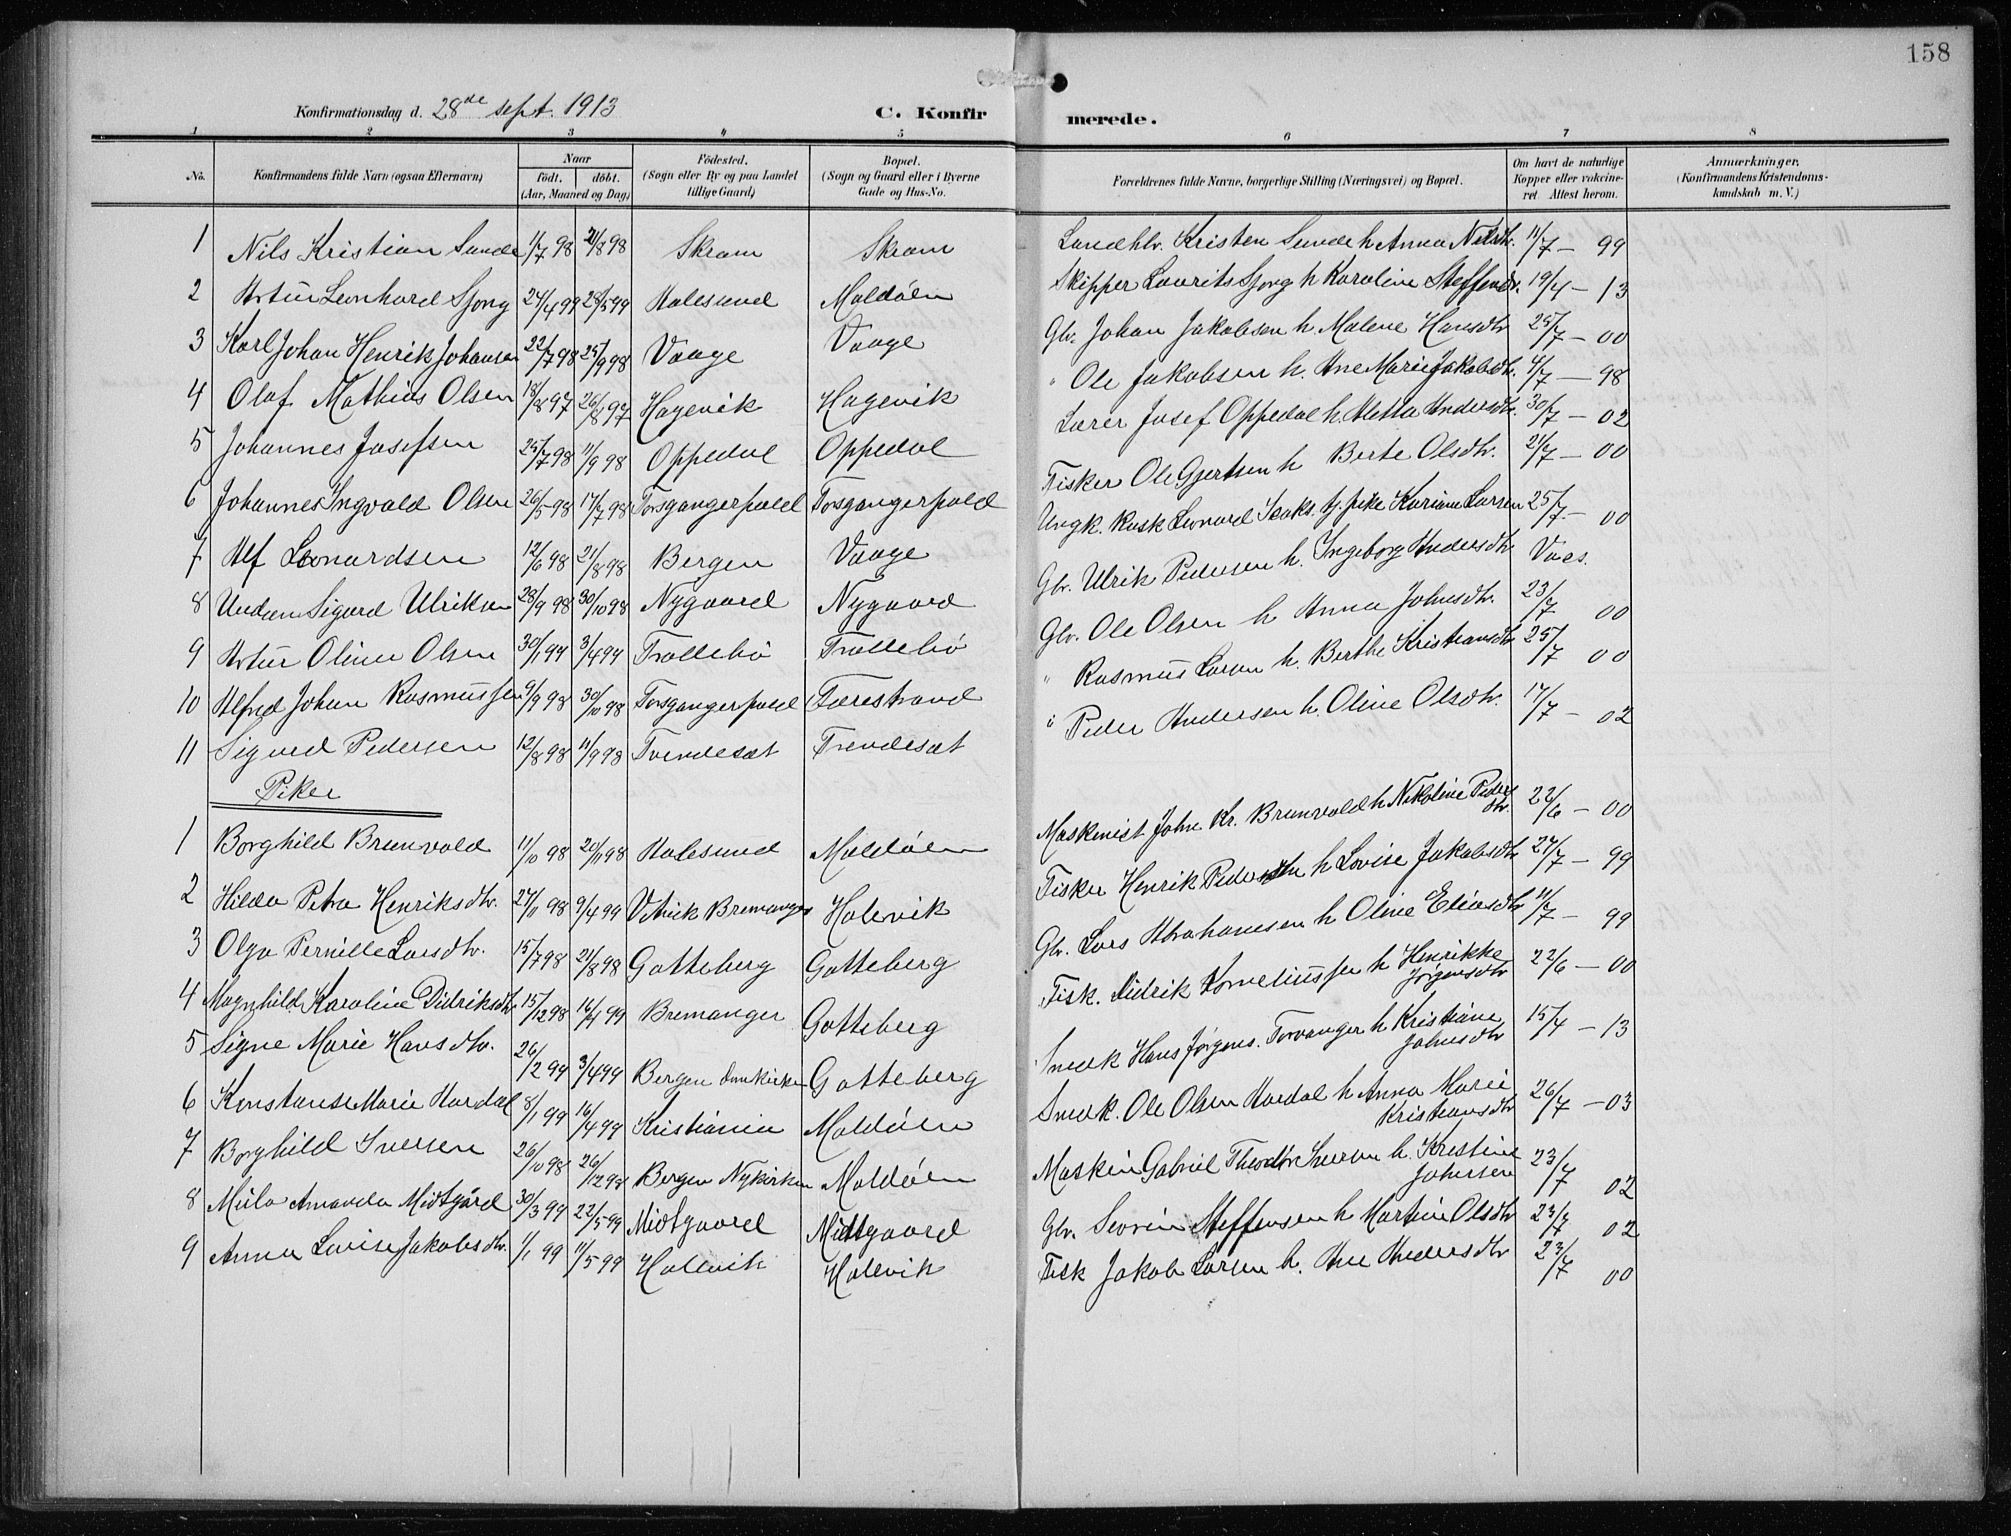 158
Konfirmationsdag d. 28de sept. 1913 C. Konfirmerede.
1 2 3 4 5 6 7 8
No. Konfirmandens fulde Navn (ogsaa Efternavn) Naar födt. döbt. (Aar, Maaned og Dag) Födested. (Sogn eller By og paa Landet tillige Gaard) Bopæl. (Sogn og Gaard eller i Byerne Gade og Hus-No. Forældrenes fulde Navne, borgerlige Stilling (Næringsvei) og Bopæl. Om havt de naturlige Kopper eller vakcineret. Attest herom. Anmærkninger. (Konfirmandens Kristendomskundskab m. V.)
1 Nils Kristian Sunde 1/7 98 21/8 98 Skram Skram Landhlr. Kristen Sunde h Anna Nilsdtr. 11/7 – 99
2 Artur Leonhard Sjong 24/4 99 28/5 99 Aalesund Maldöen Skipper Laurits Sjong h Karoline Steffensdr. 19/4 – 13
3 Karl Johan Henrik Johansen 22/7 98 25/9 98 Vaage Vaage Gbr. Johan Jakobsen h. Malene Hansdtr 25/7 – 00
4 Olaf Mathias Olsen 18/8 97 26/8 97 Hagevik Hagevik " Ole Jakobsen h. Ane Marie Jakobsdtr. 4/7 – 98
5 Johannes Josefsen 25/7 98 11/9 98 Oppedal Oppedal Lærer Josef Oppedal h. Metta Andersdtr. 30/7 – 02
6 Johannes Ingvald Olsen 26/5 98 17/7 98 Torsgangerpold Torsgangerpold Fisker Ole Gjertsen h Berte Olsdtr. 21/7 – 00
7 Alf Leonardsen 12/6 98 21/8 98 Bergen Vaage Ungk. Rask Leonard Isaks. tj. pike Kariane Larsen 25/7 – 00
8 Sigurd Ulriksen 28/9 98 30/10 98 Nygaard Nygaard Gbr. Ulrik Pedersen h. Ingeborg Andersdtr Vacs.
9 Artur Oliver Olsen 30/1 99 3/4 99 Trollebö Trollebö Gbr. Ole Olsen h Anna Johnsdtr. 23/7 00
10 Alfred Johan Rasmussen 9/9 98 30/10 98 Torsgangerpold Færestrand " Rasmus Larsen h. Berthe Kristiansdtr 25/7 00
11 Sigurd Pedersen 12/8 98 11/9 98 Tvendesæt Tvendesæt " Peder Andersen h. Oline Olsdtr. 17/7 – 02
Piker
1 Borghild Brunvold 11/10 98 20/11 98 Aalesund Maldöen Maskinist John Kr. Brunvold h Nikoline Peders dtr. 22/6 – 00
2 Hilda Petra Henriksdtr. 27/11 98 9/4 99 Vetvik Bremanger Holevik Fisker Henrik Pedersen h Lovise Jakobsdtr 27/7 – 99
3 Olga Pernille Larsdtr. 15/7 98 21/8 98 Gotteberg Gotteberg Gbr. Lars Abrahamsen h Oline Eliasdtr 11/7 – 99
4 Magnhild Karoline Didriksdtr 15/12 98 16/4 99 Bremanger Gotteberg Fisk. Didrik Korneliussen h Henrikke Jörgensdtr 22/6 – 00
5 Signe Marie Hansdtr. 26/2 99 3/4 99 Bergen Domkirken Gotteberg Smek Hans Jörgens. Torvanger h Kristiane Johnsdtr 15/4 – 13
6 Konstanse Marie Hardal 8/1 99 16/4 99 Kristiania Maldöen Smek. Ole Olsen Hardal h Anna Marie Kristiansdtr 26/7 – 03
7 Borghild Iversen 26/10 98 26/12 98 Bergen Nykirken Maldöen Maskin Gabriel Theodor Iversen h. Kristine Johnsen 23/7 02
8 Mila Amanda Midtgård 30/3 99 22/5 99 Midtgaard Midtgaard Gbr. Severin Steffensen h Martine Olsdtr 23/7 02
9 Anna Lovise Jakobsdtr. 1/1 99 11/5 99 Holevik Holevik Fisk Jakob Larsen h. Ane Andersdtr 23/7 00